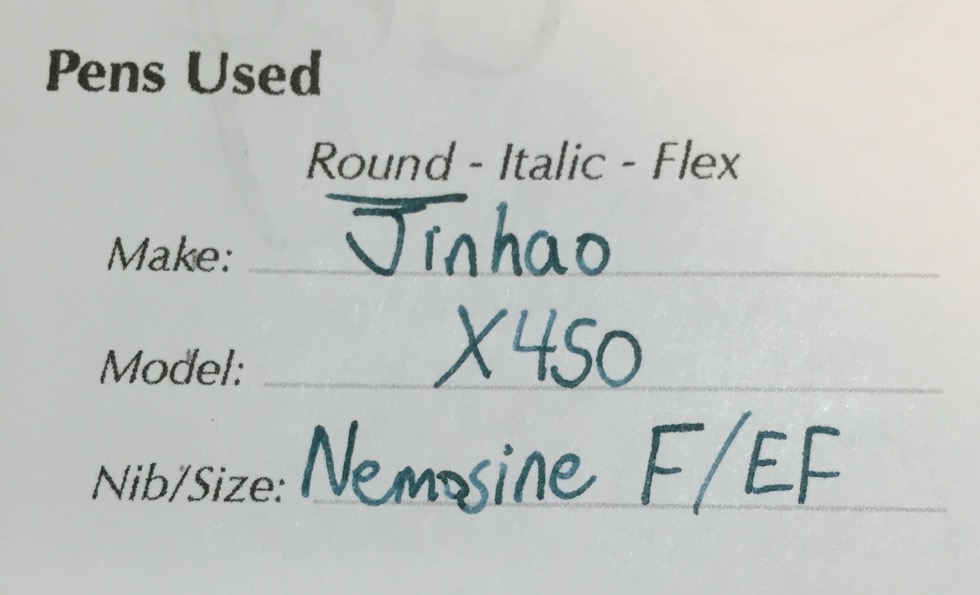 Pens Used
Round - Italic - Flex
Make: Jinhao
Model: X450
Nib/Size: Nemosine F/EF